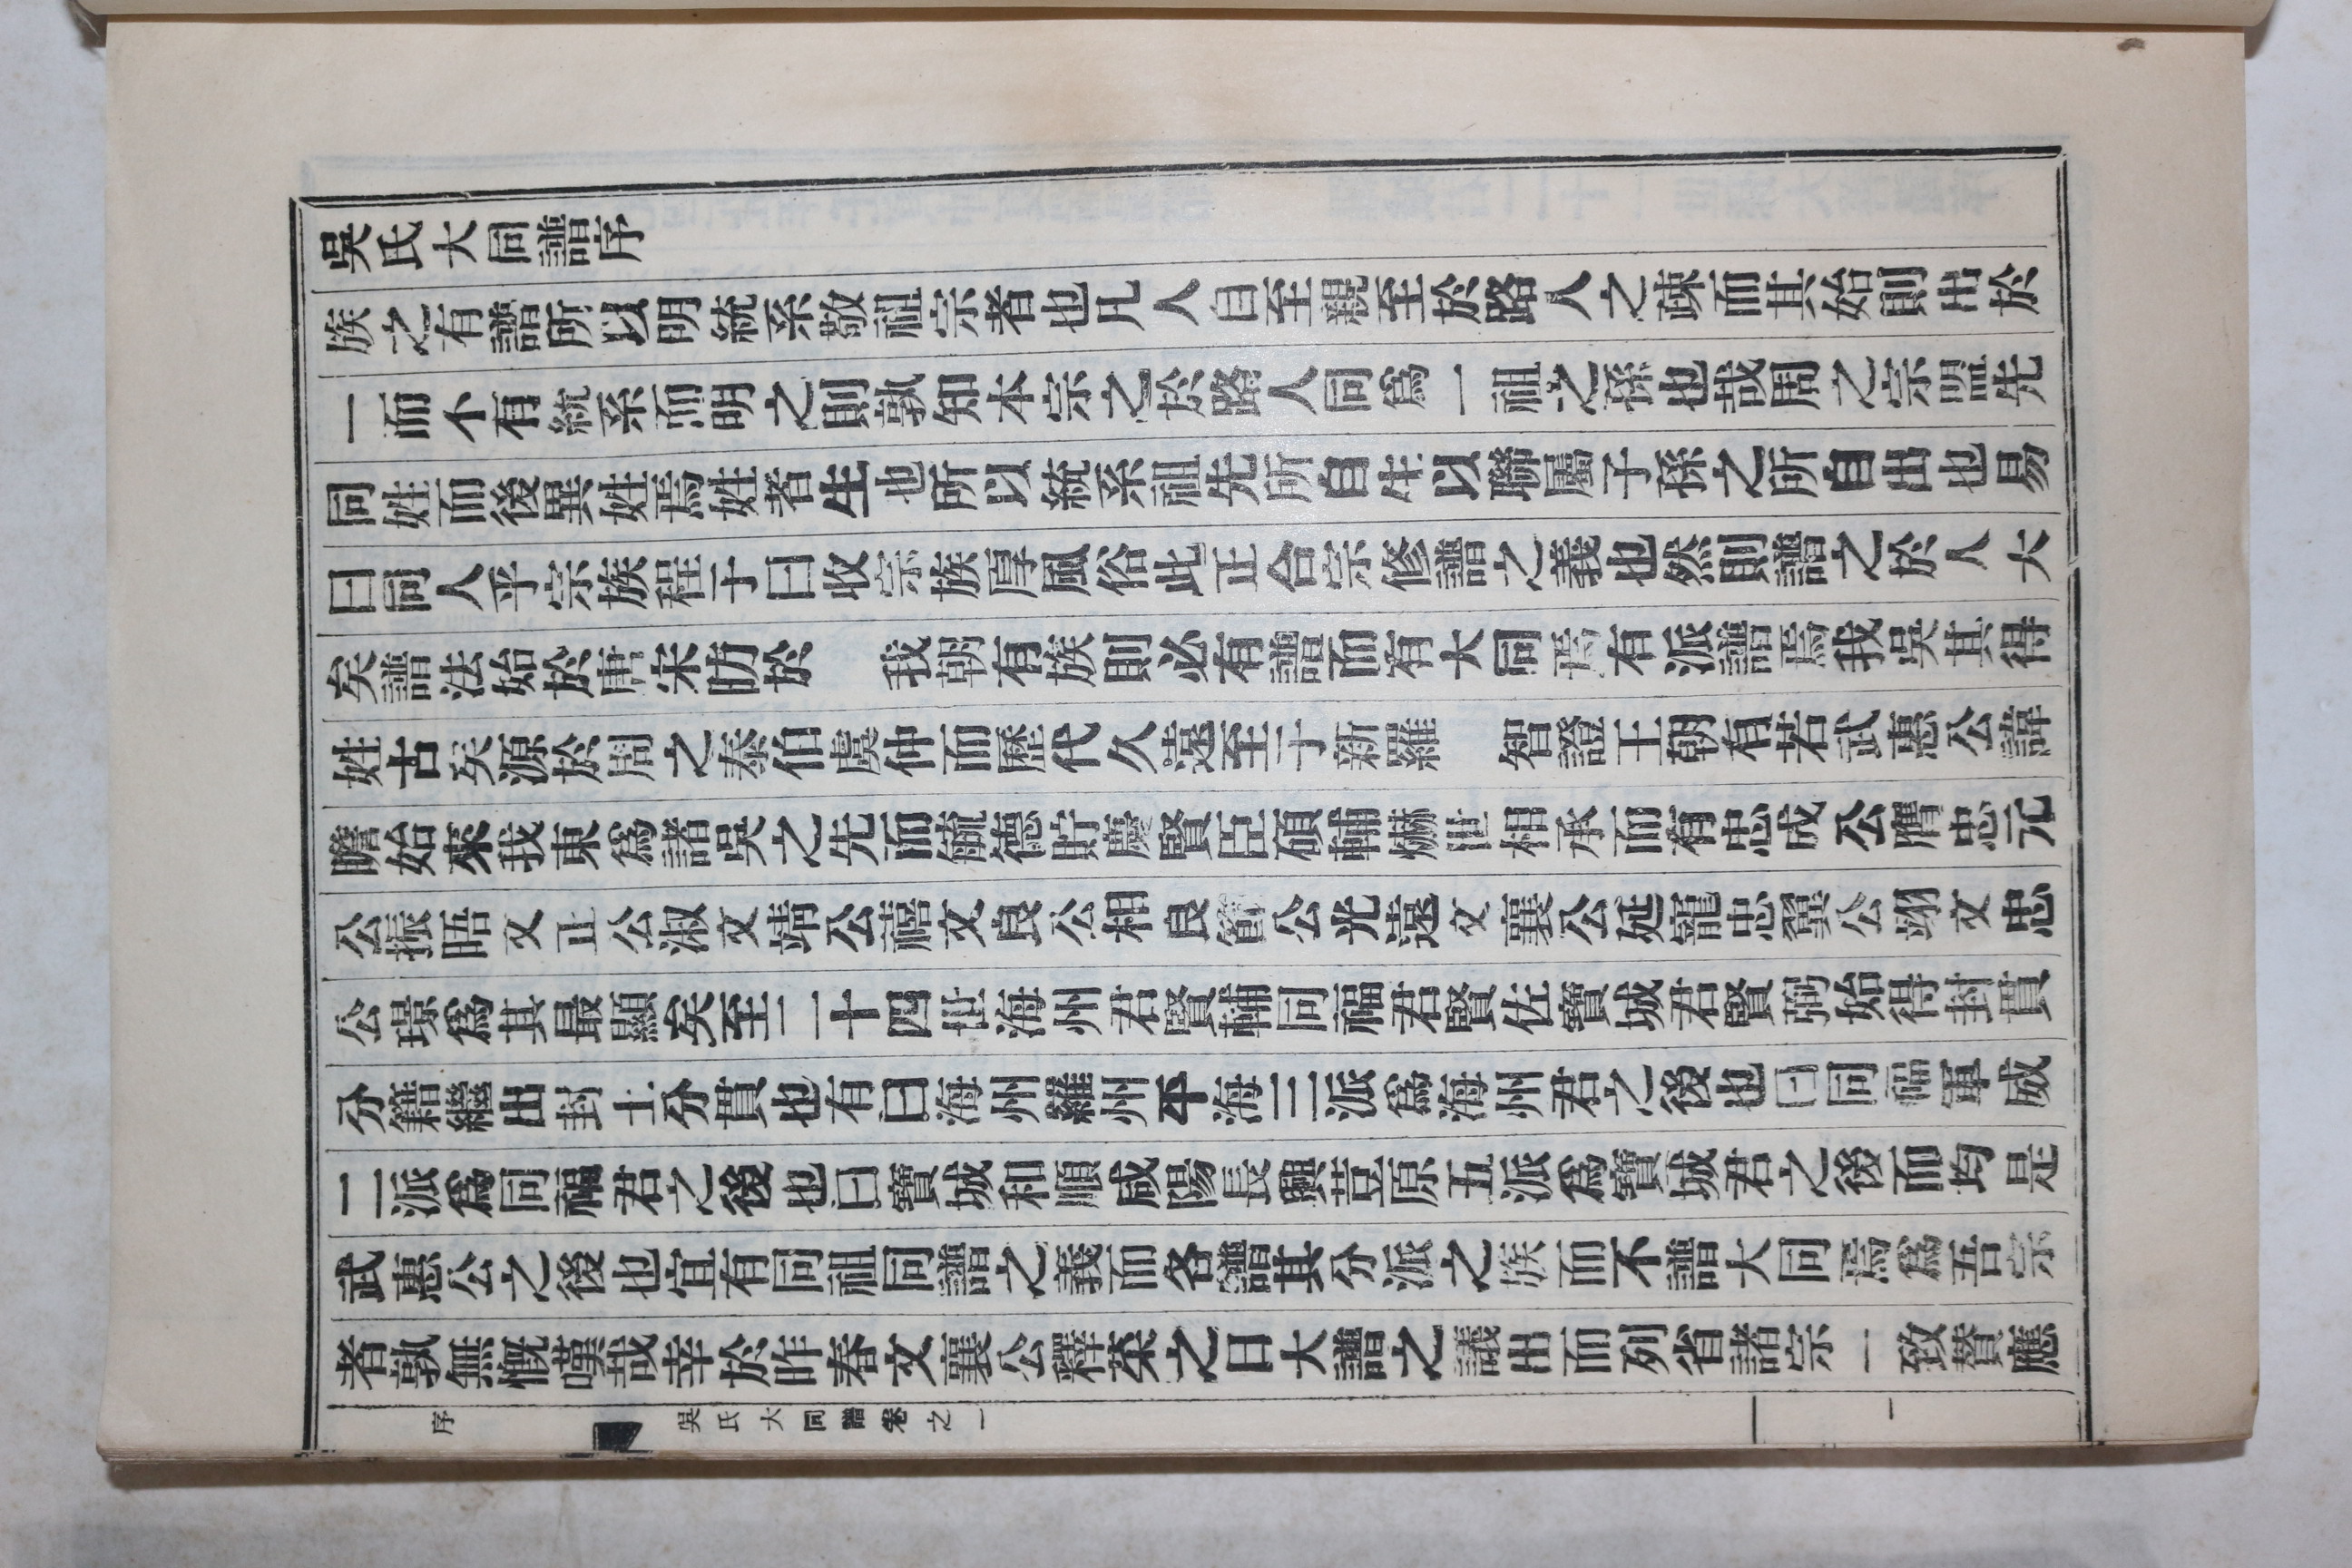 吳氏大同譜序
族之有譜所以明統系敬祖宗者也凡人自至親至於路人之疎而其始則出於
一而不有統系而明之則孰知本宗之於路人同爲一祖之孫也哉周之宗盟先
同姓而後異姓焉姓者生也所以統系祖先所自生以聯屬子孫之所自出也易
曰同人乎宗族程子曰收宗族厚風俗此正合宗修譜之義也然則譜之於人大
矣譜法始於唐宋昉於 我朝有族則必有譜而有大同焉有派譜焉我吳其得
姓古矣源於周之泰伯虞仲而歷代久遠至于新羅 智證王朝有若武惠公諱
瞻始來我東爲諸吳之先而毓德貯慶賢臣碩輔爀世相承而有忠成公膺忠元
公振晤文正公淑文靖公禧文良公相良簡公光遠文襄公延寵忠翼公翊文忠
公璟爲其最顯矣至二十四世海州君賢輔同福君賢佐寶城君賢弼始得封貫
分籍繼出封土分貫也有曰海州羅州平海三派爲海州君之後也曰同福軍威
二派爲同福君之後也曰寶城和順咸陽長興荳原五派爲寶城君之後而均是
武惠公之後也宜有同祖同譜之義而各譜其分派之族而不譜大同焉爲吾宗
者孰無慨嘆哉幸於昨春文襄公釋菜之日大譜之議出而列省諸宗一致贊應
序 吳氏大同譜卷之一 一